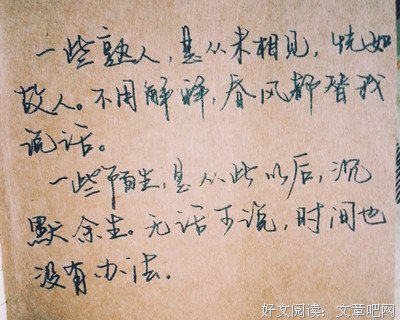 一些熟人,是从未相见,恍如
故人。不用解释,春风都替我
说话。
一些陌生,是从此以后,沉
默余生。无话可说,时间也
没有办法.
好文阅读:文章吧网